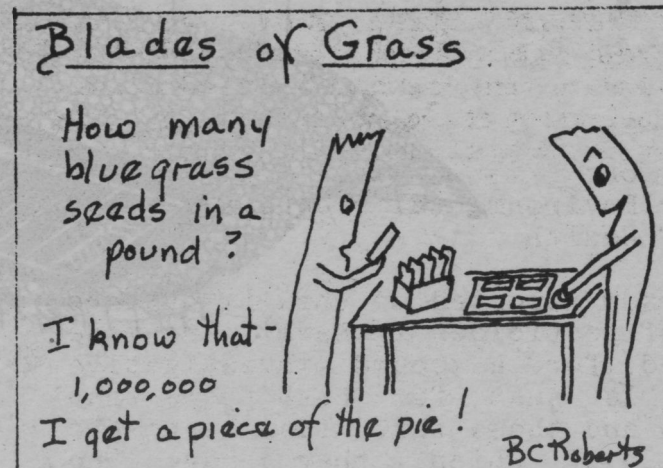 Blades of Grass
How many
bluegrass
seeds in a
pound?
I know that-
1,000,000
I get a piece of the pie!
BC Roberts